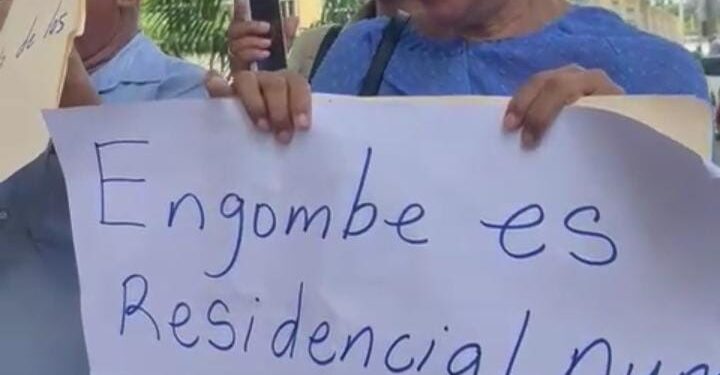 de los
Engombe es
Residencial